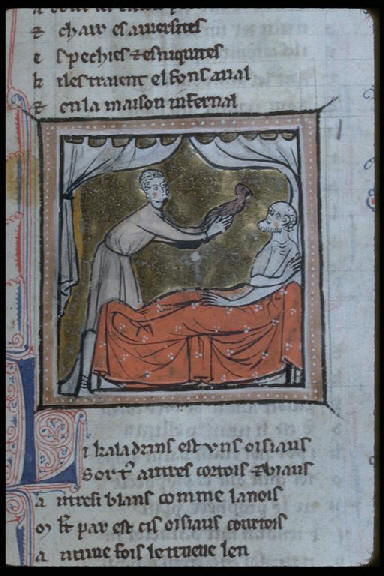 ⁊ chair es auersites
e spechies ⁊ es iniquites
k les traient el fons aual
⁊ en la maison infernal
kaladrius est vns oisiaus
Sor tͦ autres cortois ⁊ biaus
a utresi blans comme la nois
par est cis oisiaus courtois
a ucune fois le trueue len